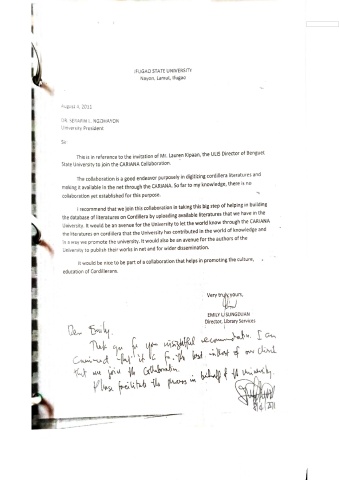 IFUGAO STATE UNIVERSITY
Nayon, Lamut, Ifugao
August 3, 2011
DR. SERAFIN L. NGOHAYON
University President
Sir
This is in reference to the invitation of Mr. Lauren Kipaan, the ULIS Director of Benguet
State University to join the CARIANA Collaboration.
The collaboration is a good endeavor purposely in digitizing cordillera literatures and
making it available in the net through the CARIANA. So far to my knowledge, there is no
collaboration yet established for this purpose.
I recommend that we join this collaboration in taking this big step of helping in building
the database of literatures on Cordillera by uploading available literatures that we have in the
University. It would be an avenue for the University to let the world know through the CARIANA
the literatures on cordillera that the University has contributed in the world of knowledge and
in a way we promote the university. It would also be an avenue for the authors of the
University to publish their works in net and for wider dissemination.
It would be nice to be part of a collaboration that helps in promoting the culture,
education of Cordillerans.
Very truly yours,
EMILY U BUNGDUAN
Director, Library Services
Dear Emily,
Thank you for your insightful recommendation. I am
convinced that it is for the best interest of our clients
that we join the Collaboration.
Please facilitate the process in behalf of the University.